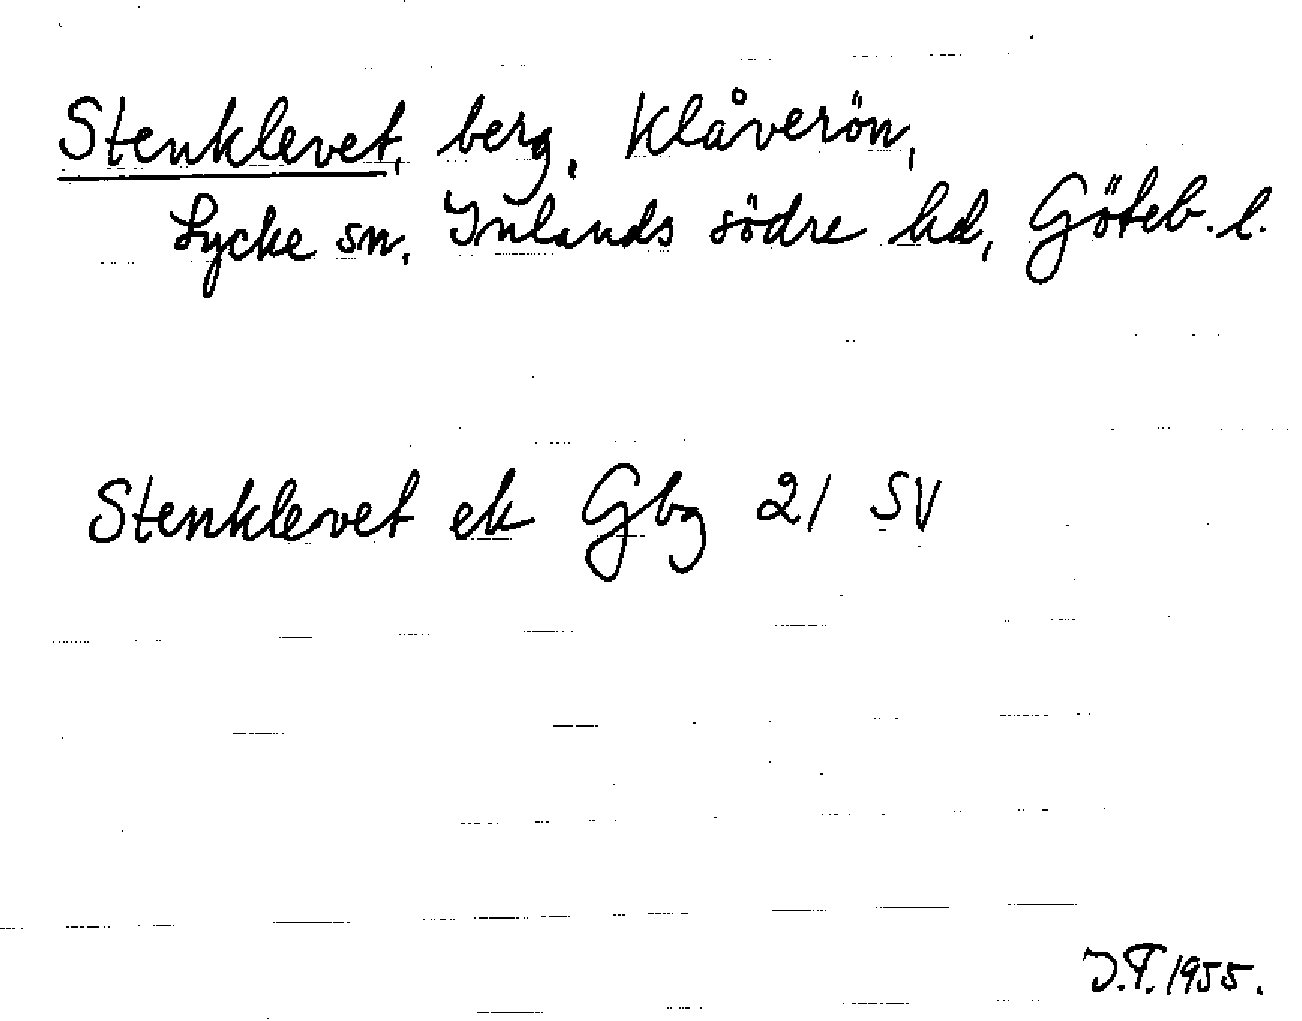 Stenklevet, berg, Klåverön,
Lycke sn, Inlands södre hd, Göteb. l.
Stenklevet ek Gbg 21 SV
J.T. 1955.